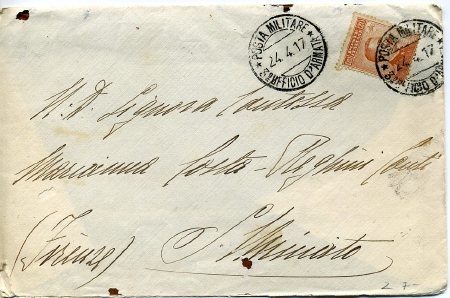 ★ POSTA MILITARE ★
24.4.17
3ª UFFICIO D'ARMATA
★ POSTA MILITARE ★
24.4.17
3ª UFFICIO D'ARMATA
N. D. Signora Contessa
Marianna Costa - Reghini Conti
(Firenze) S. Miniato
27-